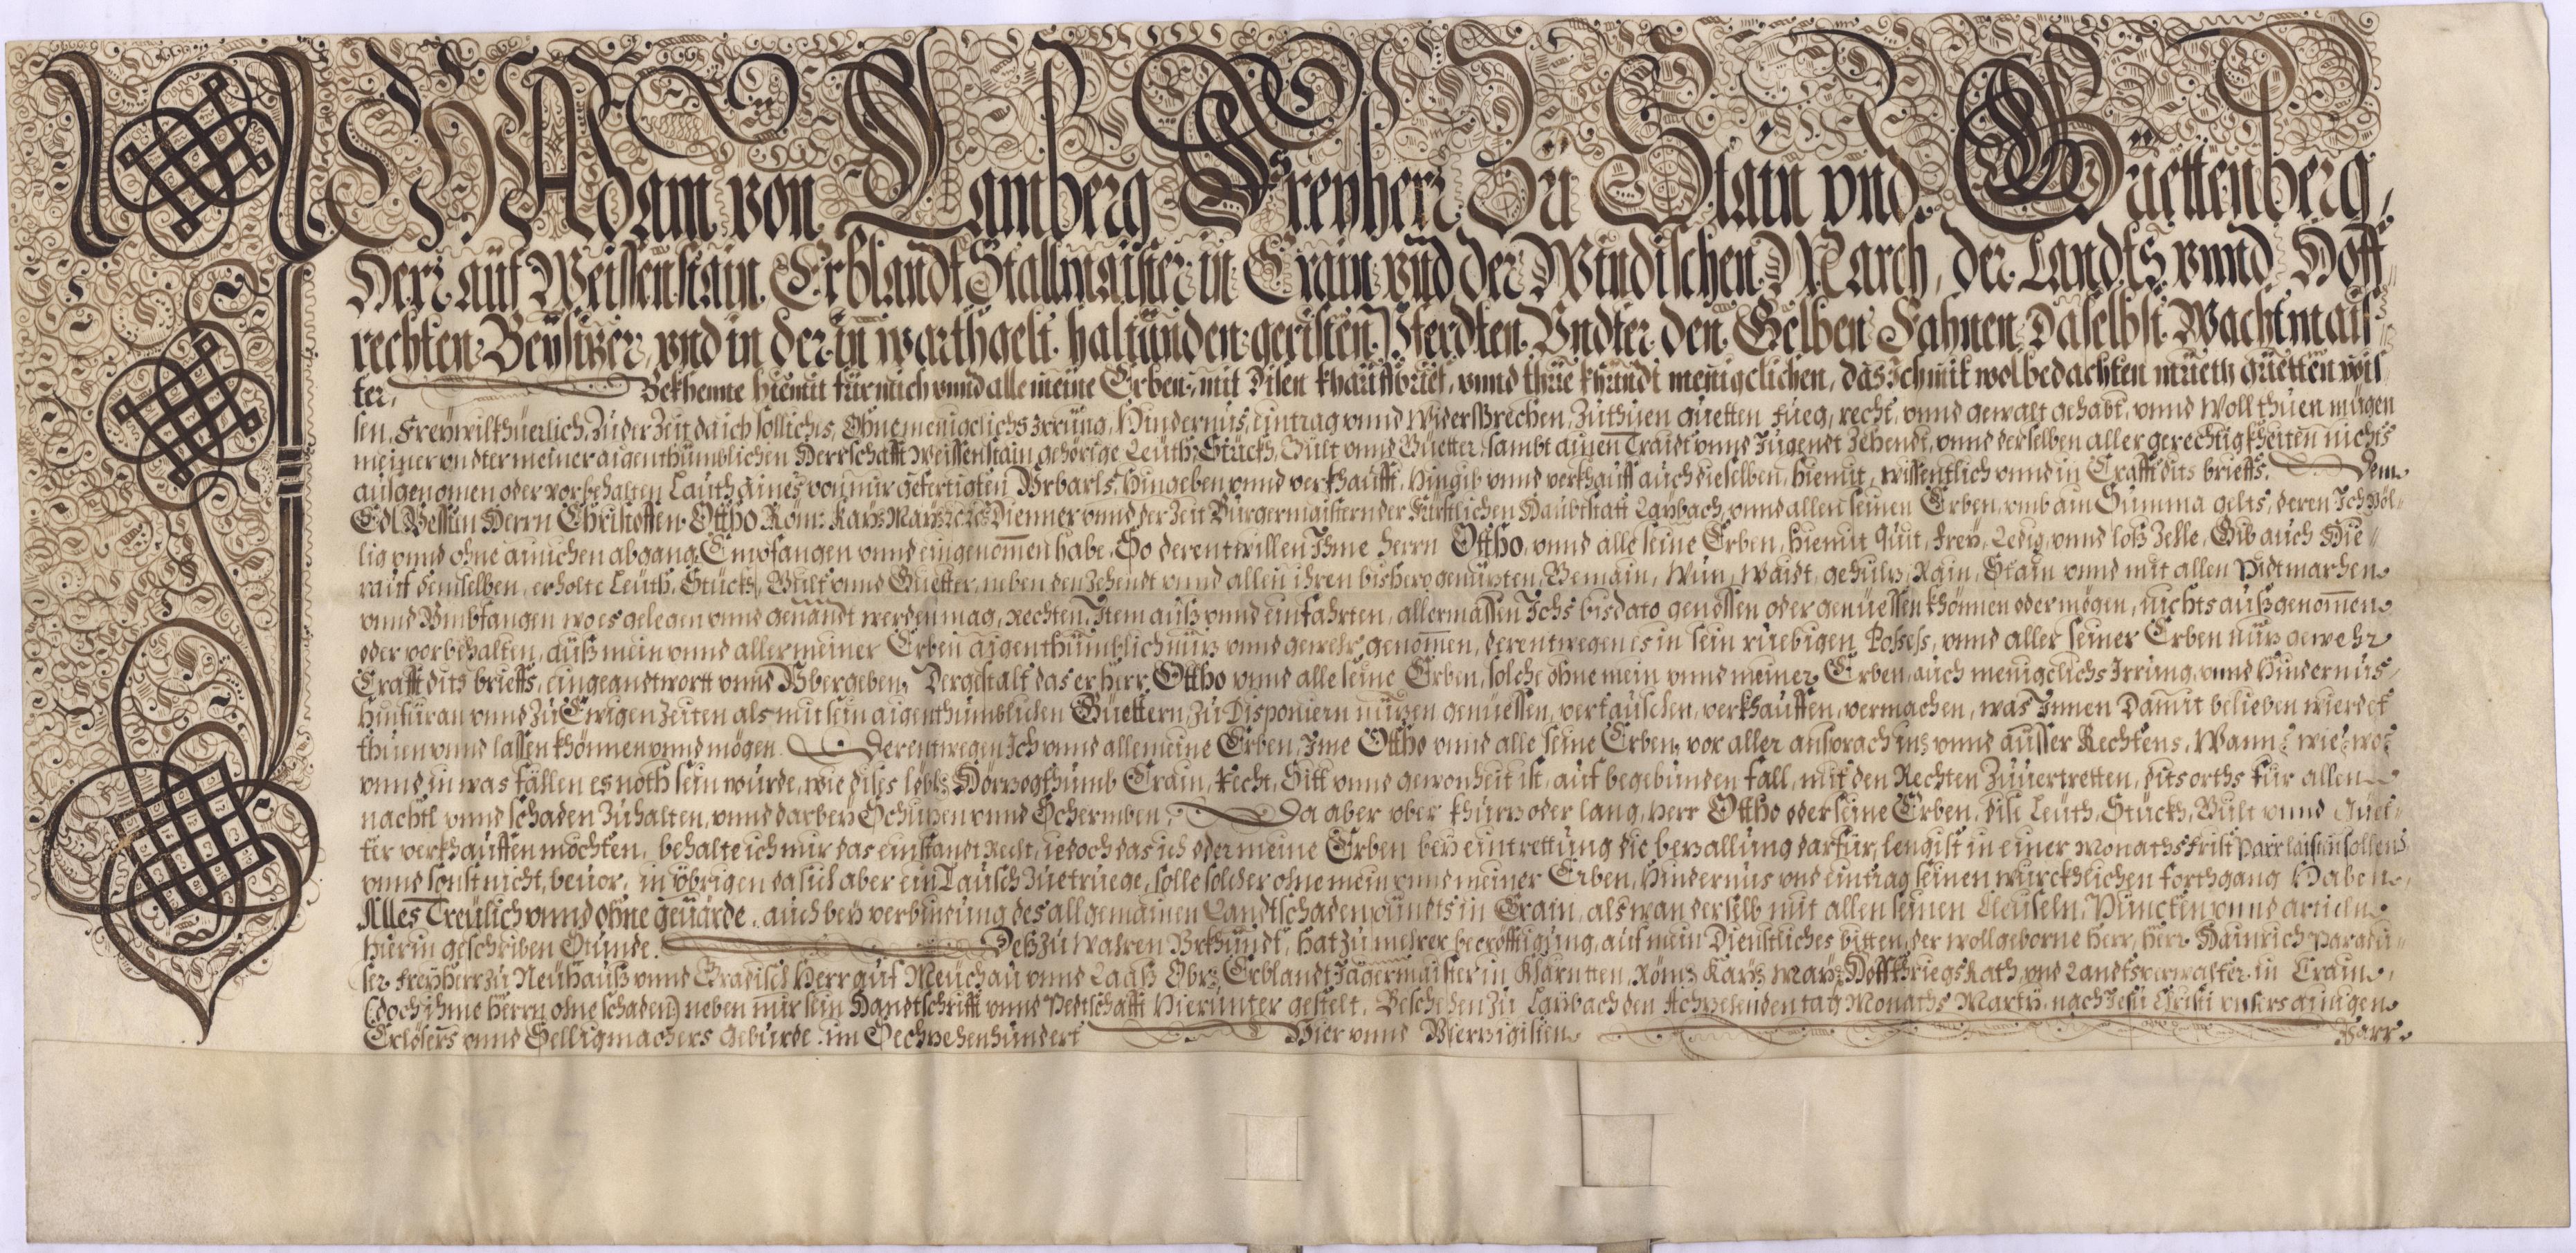 ICH Adam von Lamberg Freyherr Zu Stain vnd Guettenberg,
Herr auf Weissenstain Erblandt Stallmaister in Crain vnd der Windischen March, der Landts vnnd Hoff
rechten Beysizer, vnd in der in warthgelt haltunden geristen Pferdten Vndter den Gelben Fahnen Daselbst Wachtmais
ter, Bekhenne hiemit für mich vnnd alle meine Erben, mit disen khauffbrief, vnnd thue khundt menigclichen, das Ich mit wolbedachten mueth guetten wis
sen, Freywilkhüerlich, Zu der Zeit da ich solliches, Ohne menigclichs Irrung, Hindernus, eintrag vnnd widersprechen, Zuthuen guetten fueg, recht, vnnd gewalt gehabt, vnnd woll thuen mügen
meiner vndter meiner aigenthumblichen Herrschafft Weissenstain gehörige Leuth, Stuckh, Gült vnnd Güetter, sambt ainen Traidt vnnd Jugendt Zehendt, vnnd derselben aller gerechtigkheiten nichts
ausgenomen oder vorbehalten Lauth aines von mir gefertigten Vrbarls, Hingeben vnnd verkhaufft, Hingib vnnd verkhauff auch dieselben, hiemit, wissentlich vnnd in Crafft dits brieffs. Dem
Edl Vessten Herrn Christoffen Ottho Röm: Kay: May: Dienner vnnd der Zeit Burgermaistern der Fürstlichen Haubtstatt Laybach, vnnd allen seinen Erben, vmb ain Summa gelts, deren Ich völ
lig vnnd ohne ainichen abgang Empfangen vnnd eingenomen habe, So derentwillen Ihme Herrn Ottho, vnnd alle seine Erben, hiemit Quit, frey, Ledig, vnnd loß Zelle, Gib auch Hie
rauf demselben, erholte Leuth, Stuckh, Gült vnnd Guetter, neben den Zehendt vnnd allen ihren bishero genuzten, Gemain, Wun, Waidt, gehulz, Rain, Stain vnnd mit allen Pidtmarhen
vnnd Vmbfangen wo es gelegen vnnd genandt werden mag, Rechten, Item auß vnnd einfahrten, allermassen Ichs bis dato genossen oder genüessen khönnen oder mögen, nichts außgenomen
oder vorbehalten, auß mein vnnd aller meiner Erben aigenthumblich nuz vnnd gewehr genomen, derentwegen es in sein ruebigen Possess, vnnd aller seiner Erben nuz gewehr
Crafft dits brieffs, eingeandtwortt vnnd Vbergeben, Dergestalt das er Herr Ottho vnnd alle seine Erben, solche ohne mein vnnd meiner Erben, auch menigclichs Irrung, vnnd Hindernus,
Hinfüran vnnd Zu Ewigen Zeiten als mit sein aigenthumblichen Güettern, Zu Disponiern nuzen genüessen, vertauschen, verkhauffen, vermachen, was Innen Damit belieben wierdet
thuen vnnd lassen khönnen vnnd mögen. Derentwegen Ich vnnd alle meine Erben, Ime Ottho vnnd alle seine Erben, vor aller ansprach in: vnnd ausser Rechtens, Wann: wie: wo:
vnnd in was fällen es noth sein wurde, wie dises löbl: Hörzogthumb Crain, Recht, Sitt vnnd gewonheit ist, auf begebunden fall, mit den Rechten Zuuertretten, dits orths für allen
nachtl vnnd schaden Zuhalten, vnnd darbey Schuzen vnnd Schermben, Da aber vber khurz oder lang, Herr Ottho oder seine Erben, dise Leuth, Stuckh, Gült vnnd Güet
ter verkhauffen mochten, behalte ich mir das einstandt Recht, iedoch das ich oder meine Erben bey eintrettung die bezallung darfür, lengist in einer Monaths frist parr laisten sollen,
vnnd sonst nicht, beuor, in übrigen da sich aber ein Tausch Zuetruege, solle solcher ohne mein vnnd meiner Erben, Hindernus vnd eintrag seinen wurckhlichen forthgang Haben,
Alles Treulich vnnd ohne geuärde, auch bey verbindung des allgemainen Landtschadenpundts in Crain, als wan derselb mit allen seinen Cleuseln, Puncten vnnd articln
hierin geschriben Stünde. Deß Zu wahren Vrkhundt, hat Zu mehrer becröfftigung, auf mein Dienstliches bitten, der wollgeborne Herr, Herr Hainrich Paradei
ser Freyherr zu Neuhauß vnnd Gradisch Herr auf Meuchau vnnd Laaß Obr: Erblandt Jägermaister in Kharntten, Röm: Kay: May: Hoffkhriegs Rath, vnd Landtsverwalter in Crain,
(doch ihme Herrn ohne schaden) neben mir sein Handtschrifft vnnd Pedtschafft Hierunter gestelt. Beschehen zu Laybach den Achzehenden tag Monaths Marty, nach Jesu Christi vnsers ainigen
Erlösers vnnd Selligmachers Geburde im Sechzehenhundert Vier vnnd Vierzigisten Jarr